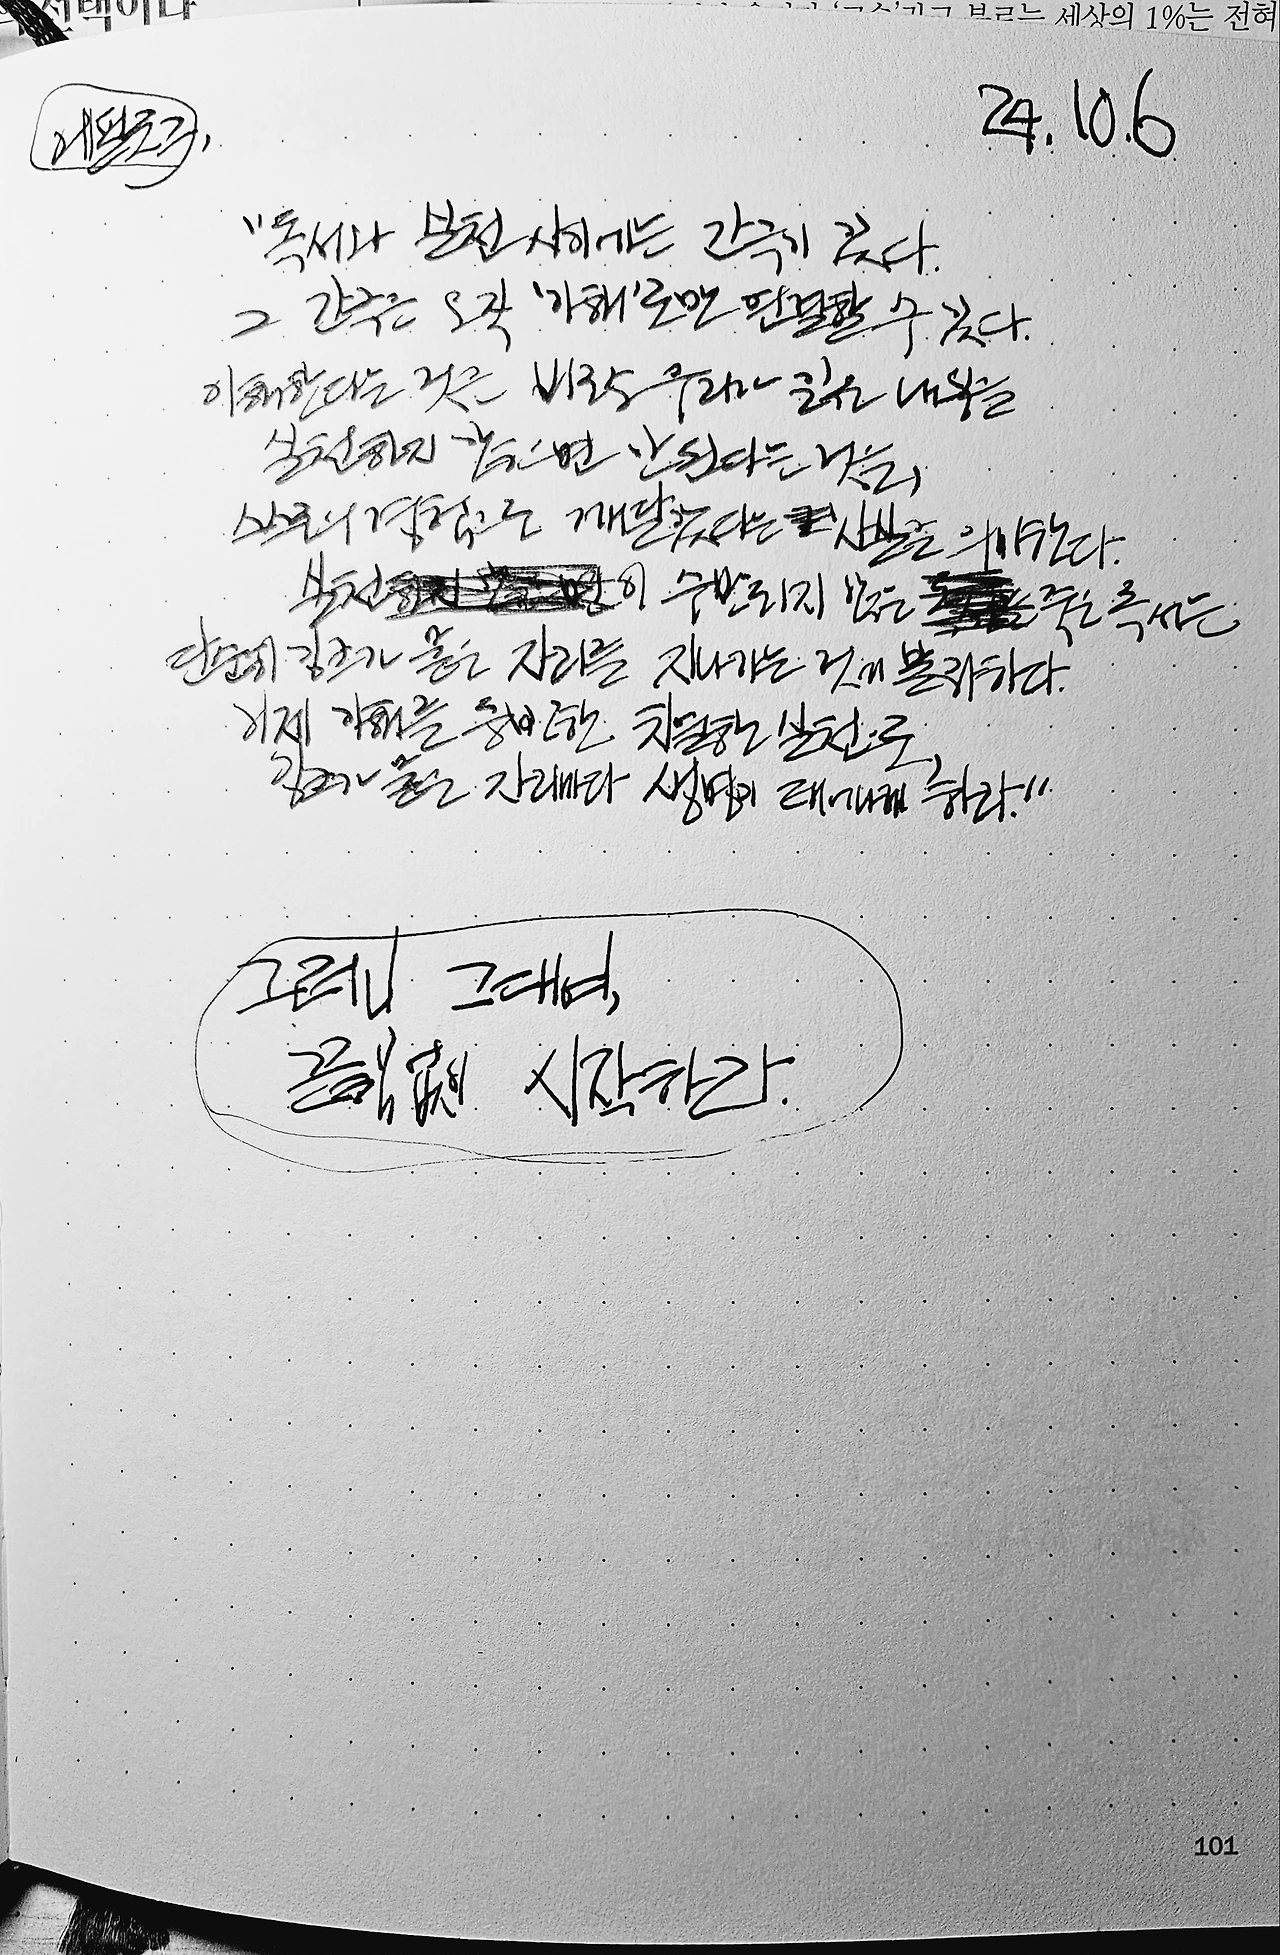 의 선택이다
'고수'라고 부르는 세상의 1%는 전혀
에필로그,
24.10.6
"독서와 실천 사이에는 간극이 있다.
그 간극은 오직 '이해'로만 연결할 수 있다.
이해한다는 것은 비로소 우리가 읽은 내용을
실천하지 않으면 안 된다는 것을,
스스로의 경험으로 깨달았다는 사실을 의미한다.
실천이 수반되지 않는 죽은 독서는
단순히 활자가 묻은 자리를 지나가는 것에 불과하다.
이제 이해를 동반한 치열한 실천으로,
활자가 묻은 자리마다 생명이 태어나게 하라."
그러니 그대여,
끊임없이 시작하라.
101